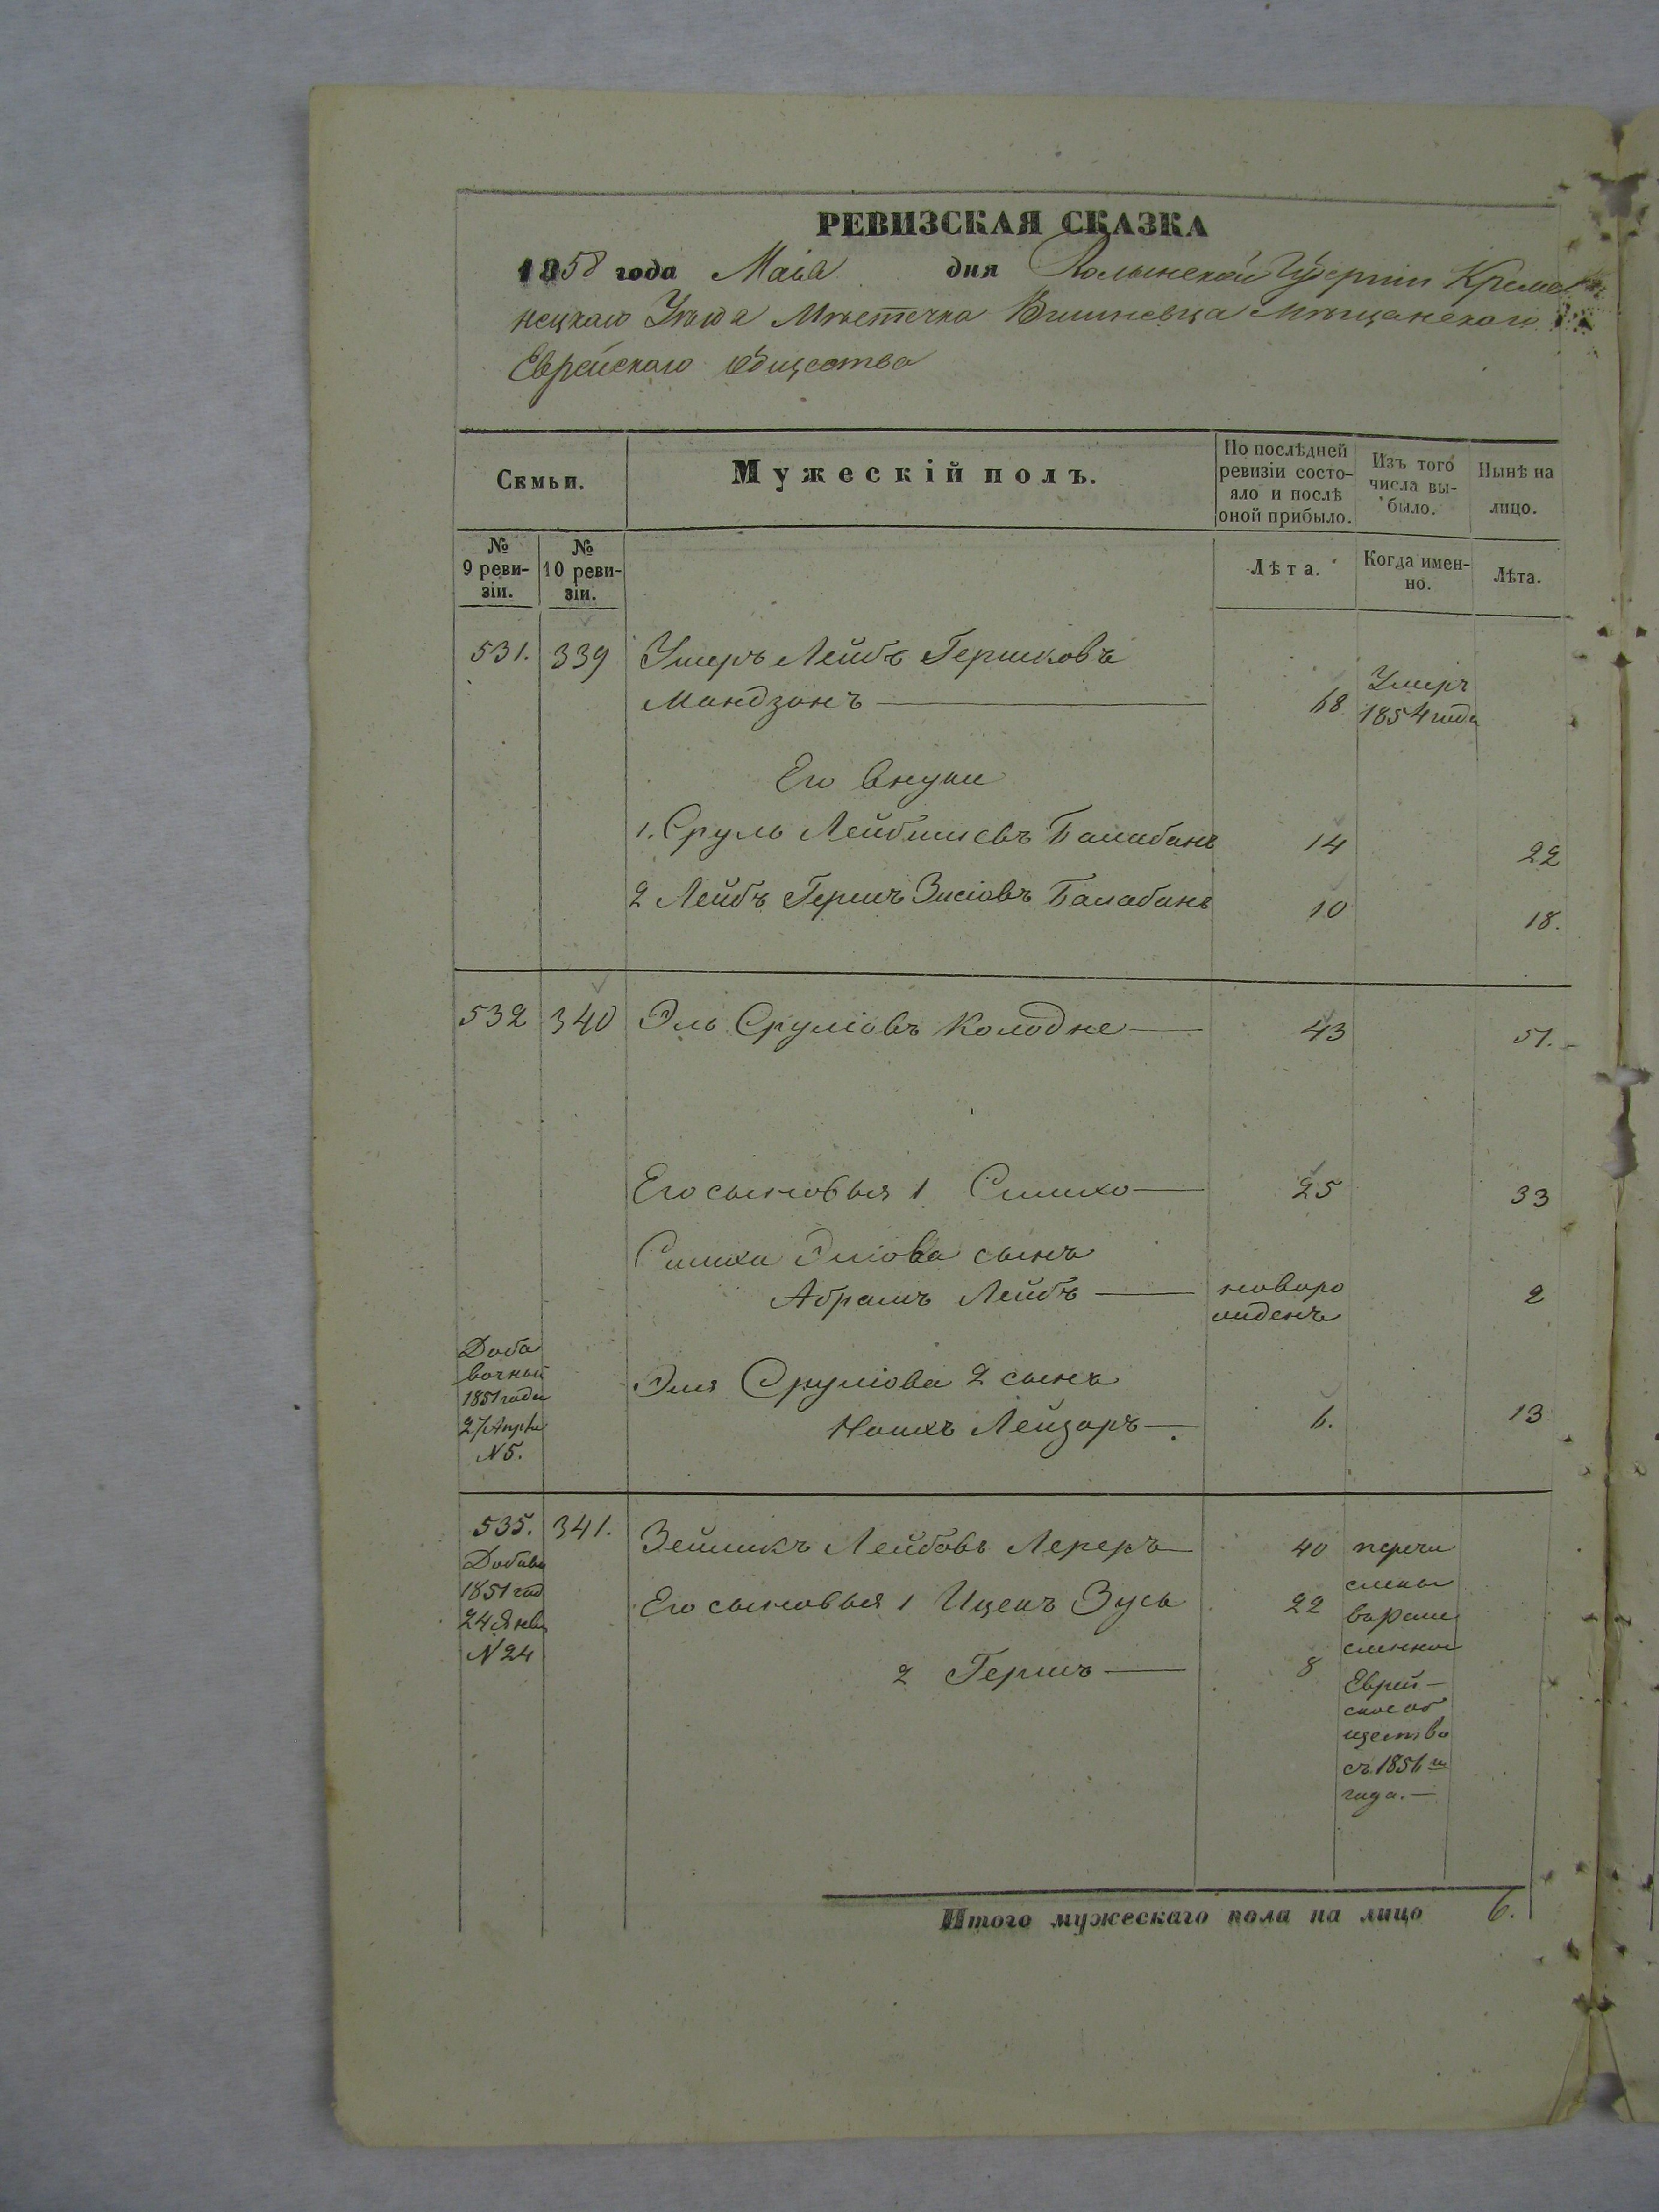 РЕВИЗСКАЯ СКАЗКА
1858 года Маія дня Волынской Губерніи Креме
нецкаго Уѣзда Мѣстечка Вишневца Мѣщанскаго
Еврейскаго Общества
Семьи. Мужескій полъ. По послѣдней ревизіи состояло и послѣ оной прибыло. Изъ того числа выбыло. Нынѣ на лицо.
№ 9 ревизіи. № 10 ревизіи. Лѣта. Когда именно. Лѣта.
531. 339 Ушеръ Лейбъ Гершковъ
Мандзонъ 68 Умеръ 1854 года
Его внуки
1. Сруль Лейбишевъ Балабанъ 14 22
2 Лейбъ Гершъ Зисіовъ Балабанъ 10 18.
532 340 Эль Сруліовъ Колодне 43 51.
Его сыновья 1 Симхо 25 33
Симхи Эліова сынъ
Абрамъ Лейбъ новоро 2
жденъ
Доба
вочный
1851 года
27 Апрѣ
№ 5.
Эля Сруліова 2 сынъ
Лейзоръ 6. 13
535. 341. Зейликъ Лейбовъ Лереръ 40 перечи
Добавоч
1851 год
24 Янв
№ 24
Его сыновья 1 Ицекъ Зусь 22
2 Гершъ 8
слены
въ
Еврей-
ское об
щество
съ 1851 го
года.
Итого мужескаго пола на лицо 6.